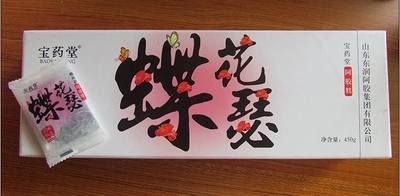 宝药堂
BAOYAOTANG
蝶
花瑟
宝药堂
阿胶糕
山东东润阿胶集团有限公司
净含量：450g
宝药堂
蝶
花瑟